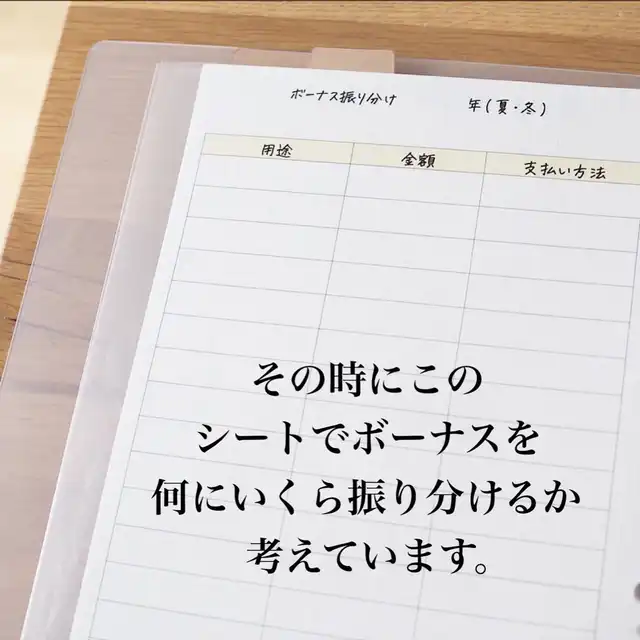 ボーナス振り分け 年(夏・冬)
用途 金額 支払い方法
その時にこの
シートでボーナスを
何にいくら振り分けるか
考えています。